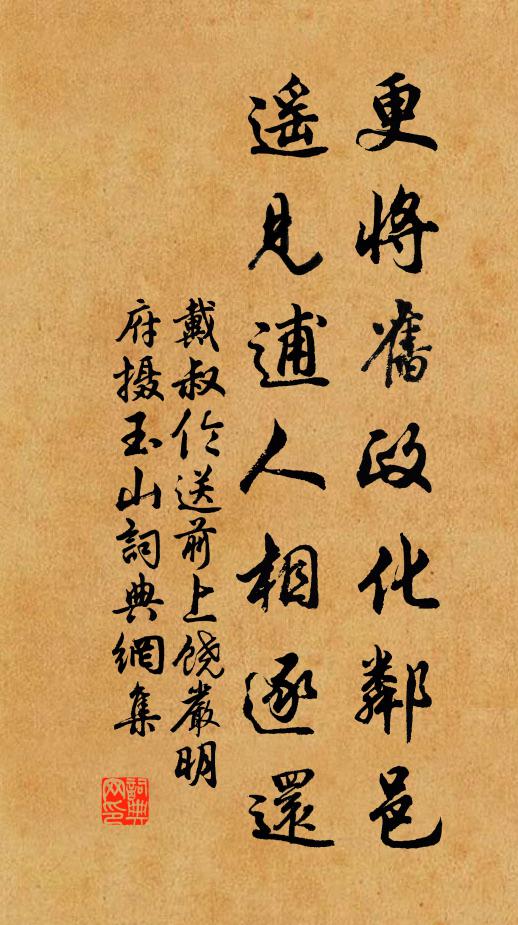 更将舊政化鄰邑
遥見逋人相逐還
戴叔伦送前上饶嚴明
府摄玉山詞典網集
詞典
网印